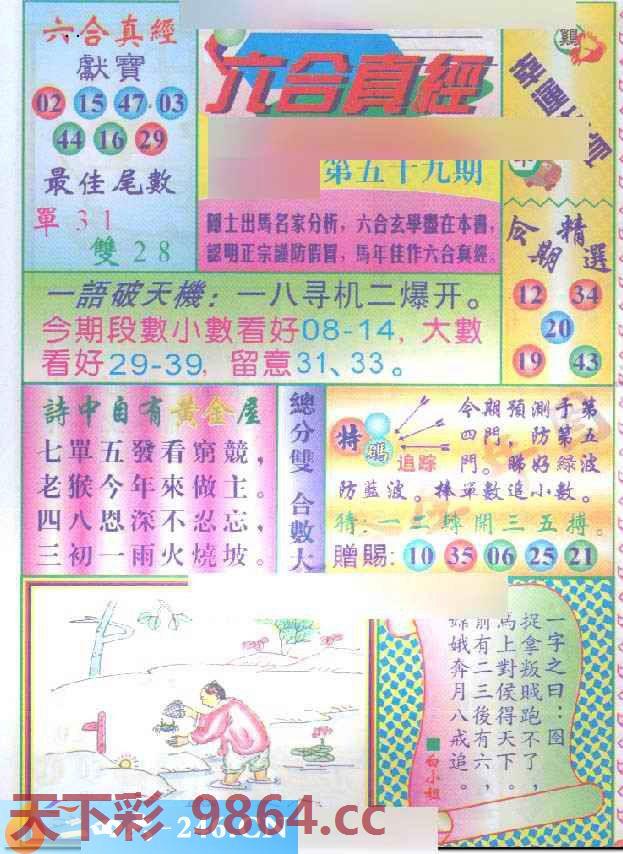 六合真經
獻寶
02 15 47 03
44 16 29
最佳尾數
單 31
雙 28
六合真經
第五十九期
隱士出馬名家分析,六合玄學盡在本書,
認明正宗謹防假冒,馬年佳作六合真經。
鷄
今期精選
12 34
20
19 43
一語破天機:一八寻机二爆开。
今期段數小數看好08-14,大數
看好29-39,留意31、33。
詩中自有黃金屋
七單五發看窮競,
老猴今年來做主。
四八恩深不忍忘,
三初一雨火燒坡。
總分雙 合數大
特碼
追踪
今期預測于第
四門,防第五
門。睇好綠波
防藍波。捧單數追小數。
猜:一二球開三五搏。
贈賜:10 35 06 25 21
一字之曰:图
捉拿叛賊跑不了,
馬上對侯得天下。
前有二三後有六,
嫦娥奔月八戒追。
白小姐
天下彩 9864.cc
246.CN